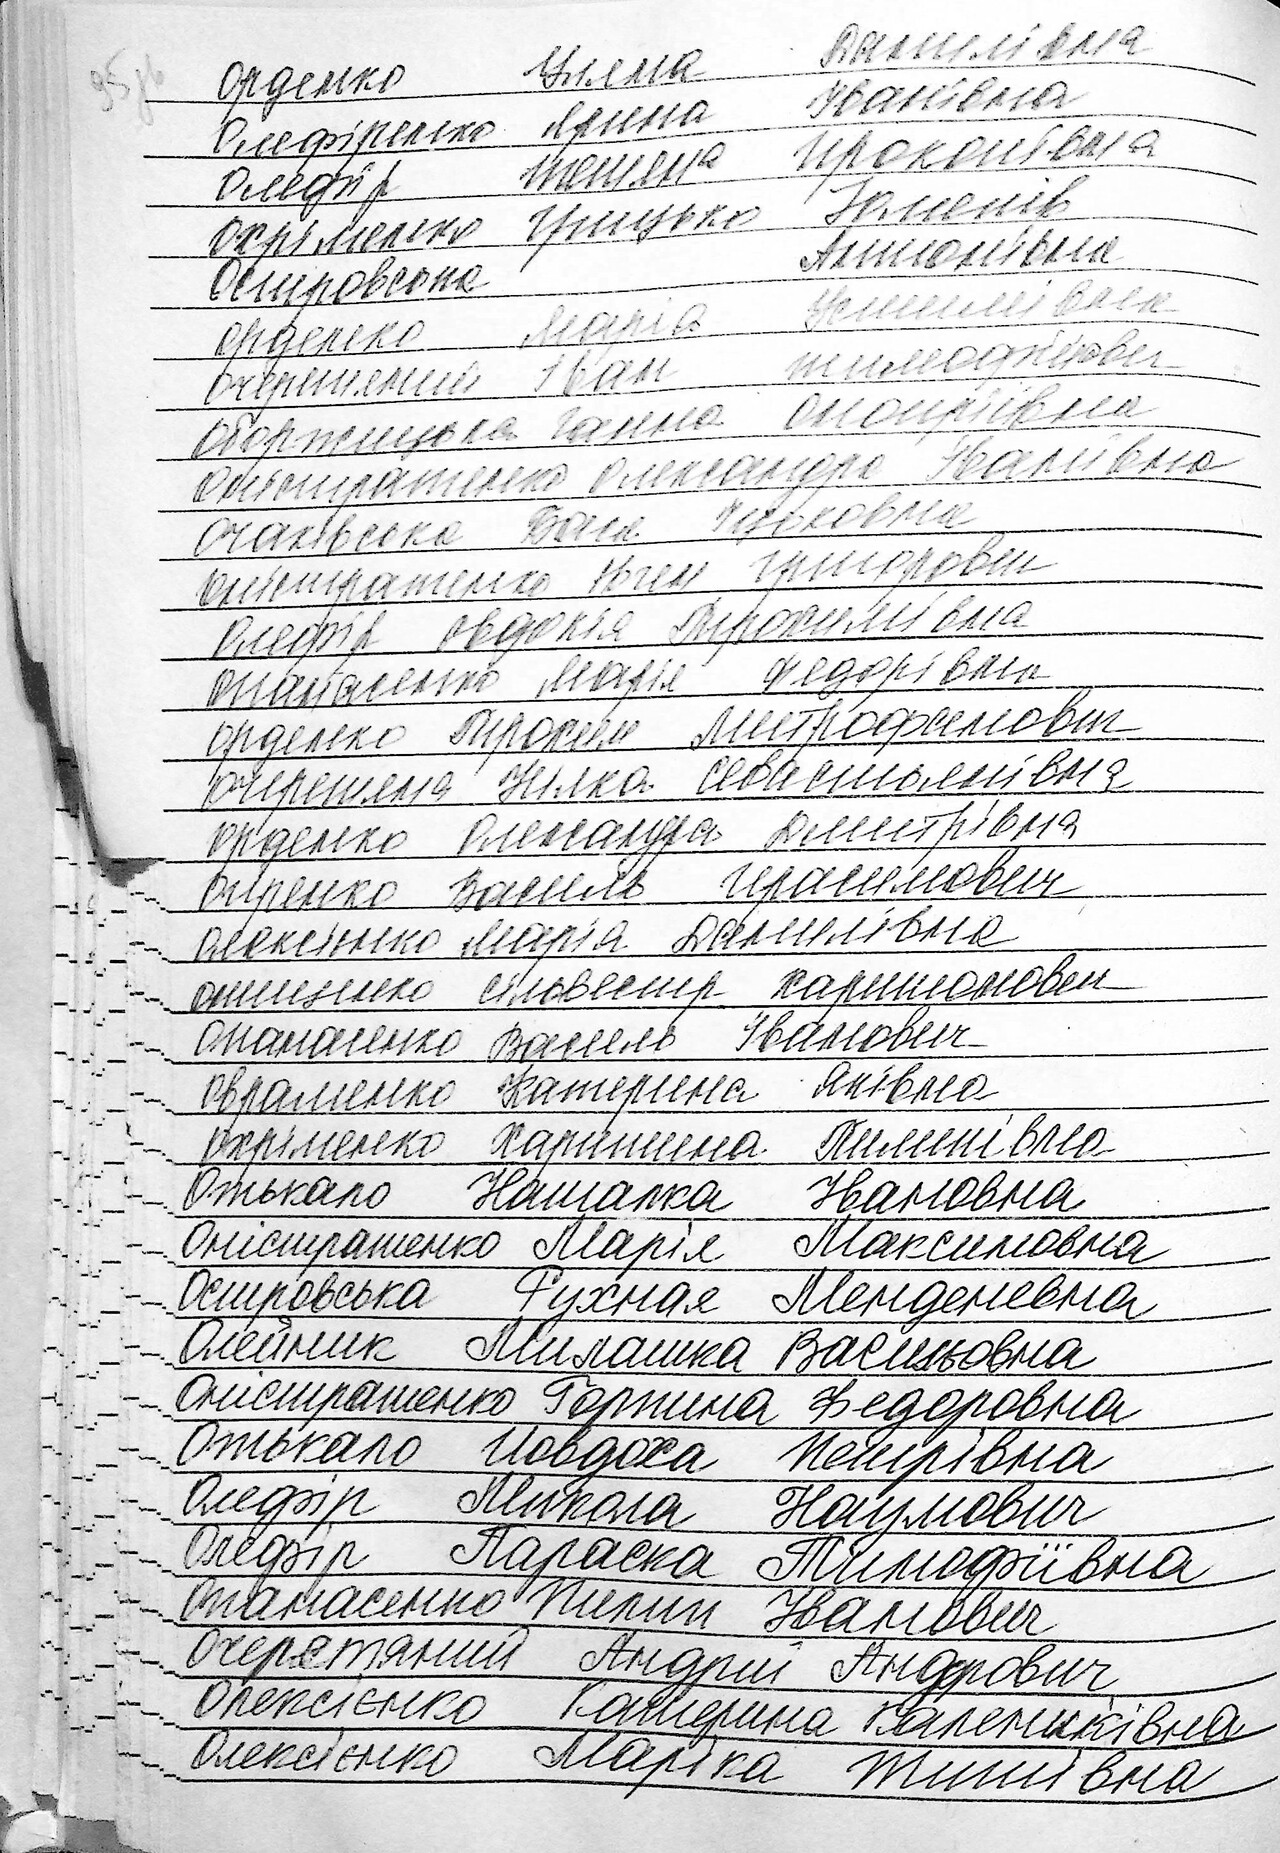 Орденко Уляна Данилівна
Олефіренко Ярина Іванівна
Олефір Тетяна Прокопівна
Охріменко Грицько
Островська Антонівна
Орденко Марія
Очеретяний Іван Тимофійович
Оборжицька Ганна Онопріївна
Оністратенко Олександра Іванівна
Очаківська Бася Ицковна
Оністратенко Яким Григорович
Олефір Овдокія Трохимівна
Опанасенко Марія Федорівна
Орденко Трохим Митрофанович
Очеретяна Уляна Севастьянівна
Орденко Олександра Дмитрівна
Василь Герасимович
Олексієнко Марія Данилівна
Онищенко Сільвестр Харитонович
Опанасенко Василь Іванович
Овраменко Катерина Яківна
Охріменко Харитина Пилипівна
Отькало Наталка Івановна
Оністратенко Марія Максимовна
Островська Рухная Менделевна
Олейник Милашка Васильовна
Оністратенко Горпина Федоровна
Отькало Йовдоха Петрівна
Олефір Микола Наумович
Олефір Параска Тимофіївна
Опанасенко Пилип Іванович
Очеретяний Андрій Андрович
Олексієнко Катерина Калениківна
Олексієнко Маріка